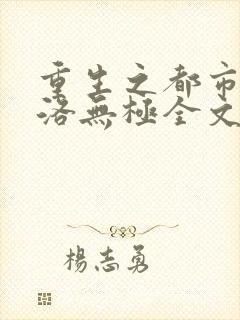 重生之都市
洛無極全文
楊志勇